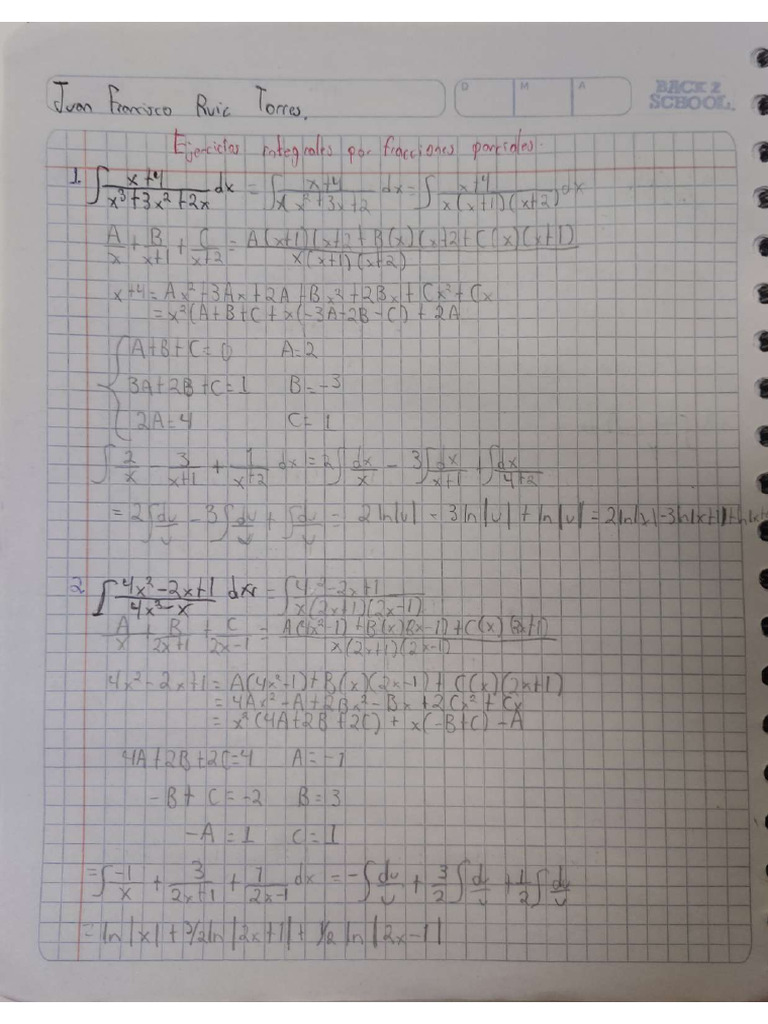 Juan Francisco Ruiz Torres.
D M A
BACK 2 SCHOOL.
Ejercicios integrales por fracciones parciales.
1. ∫ (x+4)/(x³+3x²+2x) dx = ∫ (x+4)/(x x²+3x+2) dx = ∫ (x+4)/(x(x+1)(x+2)) dx
A/x + B/(x+1) + C/(x+2) = (A(x+1)(x+2 + B(x)(x+2 + C(x)(x+1))/(x(x+1)(x+2))
x+4 = Ax²+3Ax+2A+Bx²+2Bx+Cx²+Cx
= x²(A+B+C + x(-3A-2B-C) + 2A
A+B+C=0 A=2
3A+2B+C=1 B=-3
2A=4 C=1
∫ 2/x - 3/(x+1) + 1/(x+2) dx = 2∫ dx/x - 3∫ dx/(x+1) + ∫ dx/(4+2)
= 2∫ du/u - 3∫ du/u + ∫ du/u = 2ln|u| - 3ln|u| + ln|u| = 2ln|x|-3ln|x+1|+ln|x+
2. ∫ (4x²-2x+1)/(4x³-x) dx = ∫ (4x²-2x+1)/(x(2x+1)(2x-1))
A/x + B/(2x+1) + C/(2x-1) = (A(4x²-1)+B(x)(2x-1)+C(x)(2x+1))/(x(2x+1)(2x-1))
4x²-2x+1 = A(4x²-1)+B(x)(2x-1)+C(x)(2x+1)
= 4Ax²-A+2Bx²-Bx+2Cx²+Cx
= x²(4A+2B+2C)+x(-B+C)-A
4A+2B+2C=4 A=-1
-B+C=-2 B=3
-A=1 C=1
= ∫ -1/x + 3/(2x+1) + 1/(2x-1) dx = -∫ du/u + 3/2 ∫ du/u + 1/2 ∫ du/u
= ln|x| + 3/2 ln|2x+1| + 1/2 ln|2x-1|